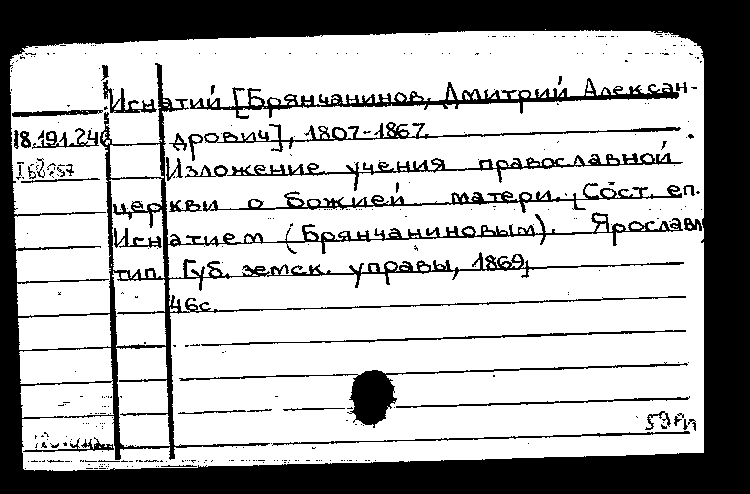 Игнатий [Брянчанинов, Дмитрий Алексан-
18.191.246 дрович], 1807-1867.
Изложение учения православной
церкви о божией матери. [Сост. еп.
Игнатием (Брянчаниновым). Ярославль
тип. Губ. земск. управы, 1869]
46с.